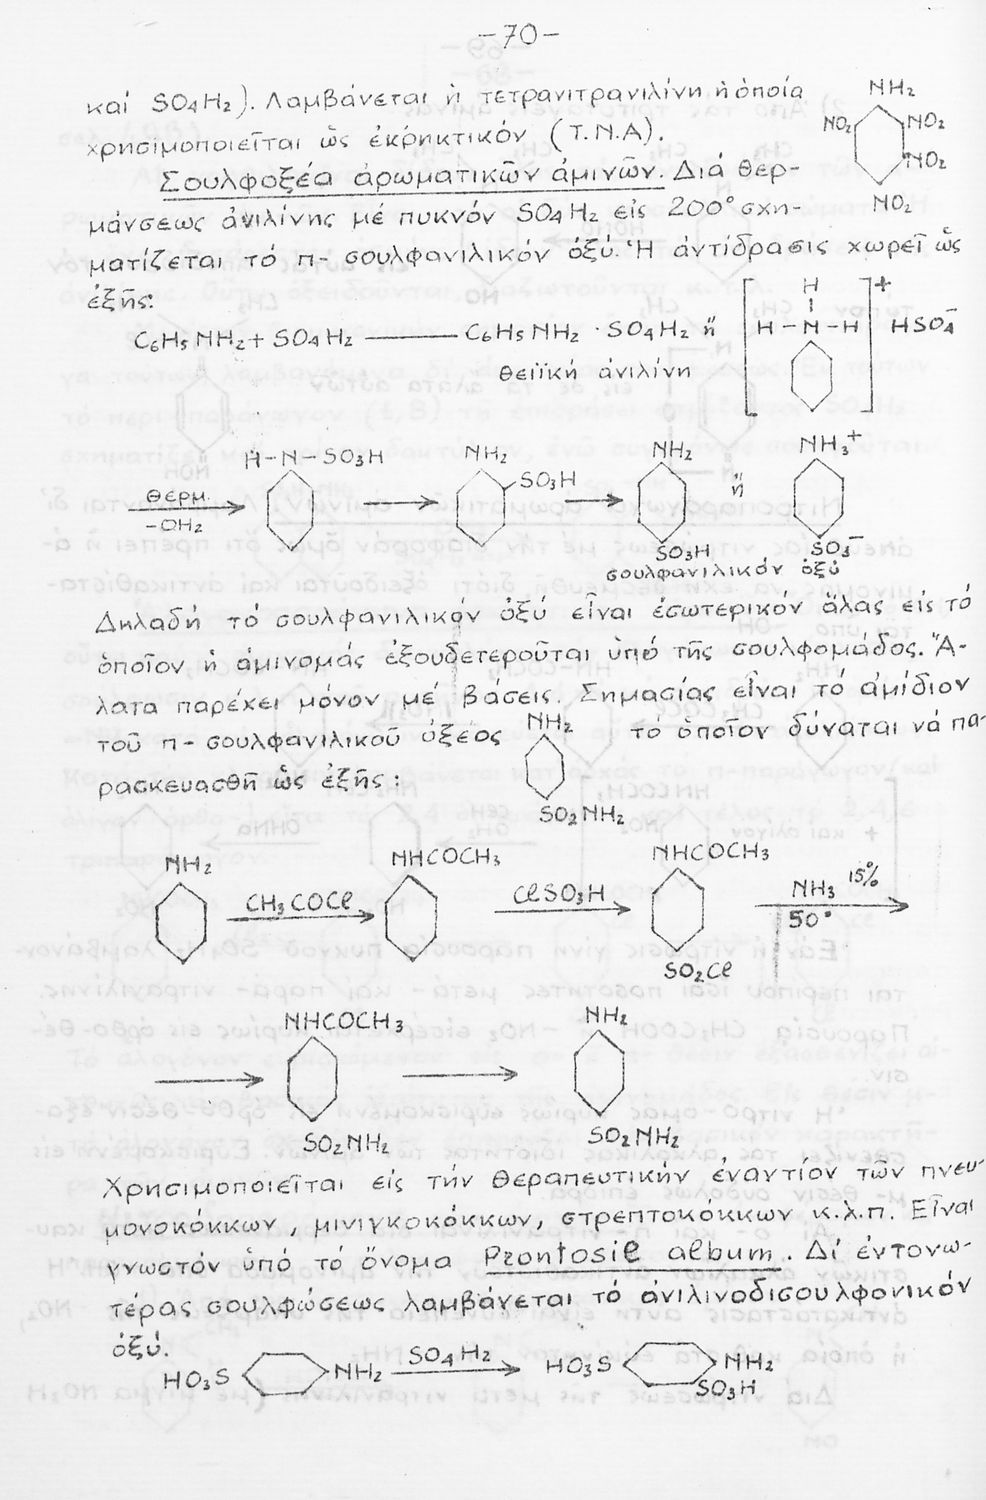 -70-
καί SO4H2). Λαμβάνεται ἡ τετρανιτρανιλίνη ἡ ὁποία
χρησιμοποιεῖται ὡς ἐκρηκτικόν (T.N.A).
NH2
NO2 NO2
NO2
NO2
Σουλφοξέα ἀρωματικῶν ἀμινῶν. Διά θερ-
μάνσεως ἀνιλίνης μέ πυκνόν SO4H2 εἰς 200° σχη-
ματίζεται τό π- σουλφανιλικόν ὀξύ. Ἡ ἀντίδρασις χωρεῖ ὡς
ἑξῆς:
C6H5NH2 + SO4H2 ——— C6H5NH2 · SO4H2 ἤ [H-N-H]+ HSO4-
H
θειϊκή ἀνιλίνη
H-N-SO3H NH2 NH2 ἤ NH3+
θερμ. SO3H
-OH2 SO3H SO3-
σουλφανιλικόν ὀξύ
Δηλαδή τό σουλφανιλικόν ὀξύ εἶναι ἐσωτερικόν ἅλας εἰς τό
ὁποῖον ἡ ἀμινομάς ἐξουδετεροῦται ὑπό τῆς σουλφομάδος. Ἅ-
λατα παρέχει μόνον μέ βάσεις. Σημασίας εἶναι τό ἀμίδιον
τοῦ π- σουλφανιλικοῦ ὀξέος NH2 τό ὁποῖον δύναται νά πα-
ρασκευασθῆ ὡς ἑξῆς:
SO2NH2
NH2 NHCOCH3 NHCOCH3
CH3COCl ClSO3H NH3 15%
50°
SO2Cl
NHCOCH3 NH2
SO2NH2 SO2NH2
Χρησιμοποιεῖται εἰς τήν θεραπευτικήν ἐναντίον τῶν πνευ-
μονοκόκκων, μινιγκοκόκκων, στρεπτοκόκκων κ.λ.π. Εἶναι
γνωστόν ὑπό τό ὄνομα Prontosil album. Δί ἐντονω-
τέρας σουλφώσεως λαμβάνεται τό ἀνιλινοδισουλφονικόν
ὀξύ.
HO3S NH2 SO4H2 HO3S NH2
SO3H